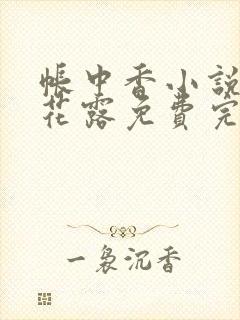 帳中香小說
花露免費完
一裊沉香